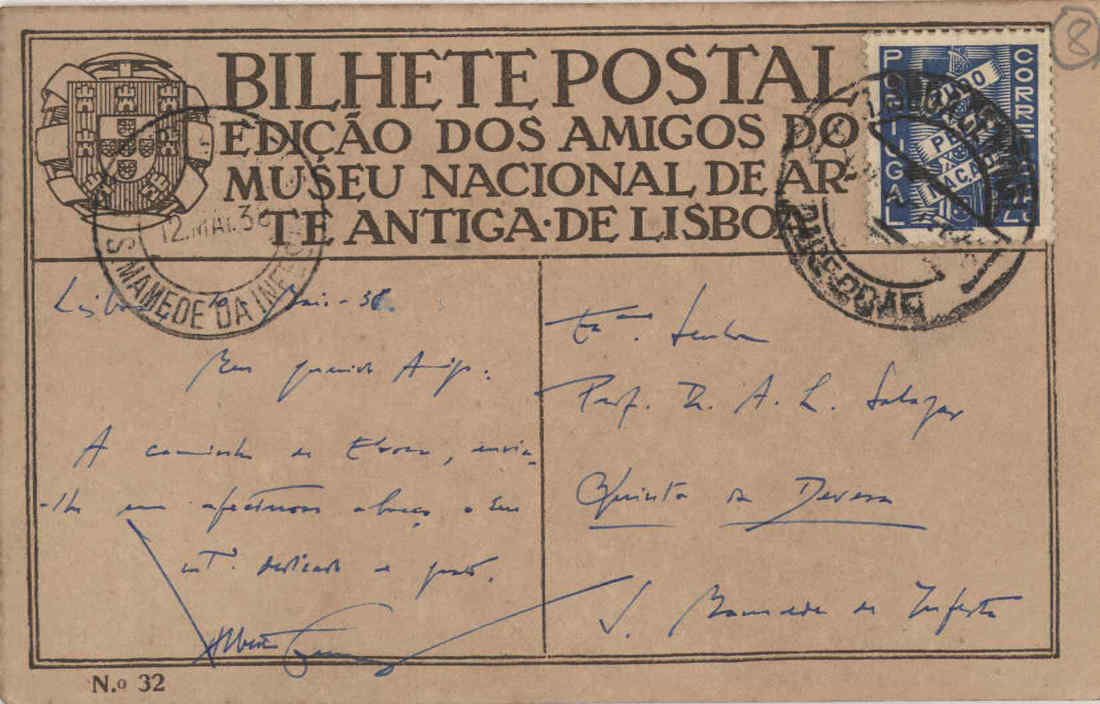 8
BILHETE POSTAL
EDIÇÃO DOS AMIGOS DO
MUSEU NACIONAL DE AR-
TE ANTIGA·DE LISBOA
PORTUGAL
CORREIO
TUDO
PELA
NAÇÃO
12.MAI.38
S. MAMEDE DA INFESTA
Lisboa 10 Maio-38.
Meu querido Amigo:
A caminho de Evora, envia-
-lhe um afectuoso abraço o seu
mtº. dedicado e grato.
Exmº. Senhor
Prof. Dr. A. L. Salazar
Quinta da Devesa
S. Mamede de Infesta
N.º 32